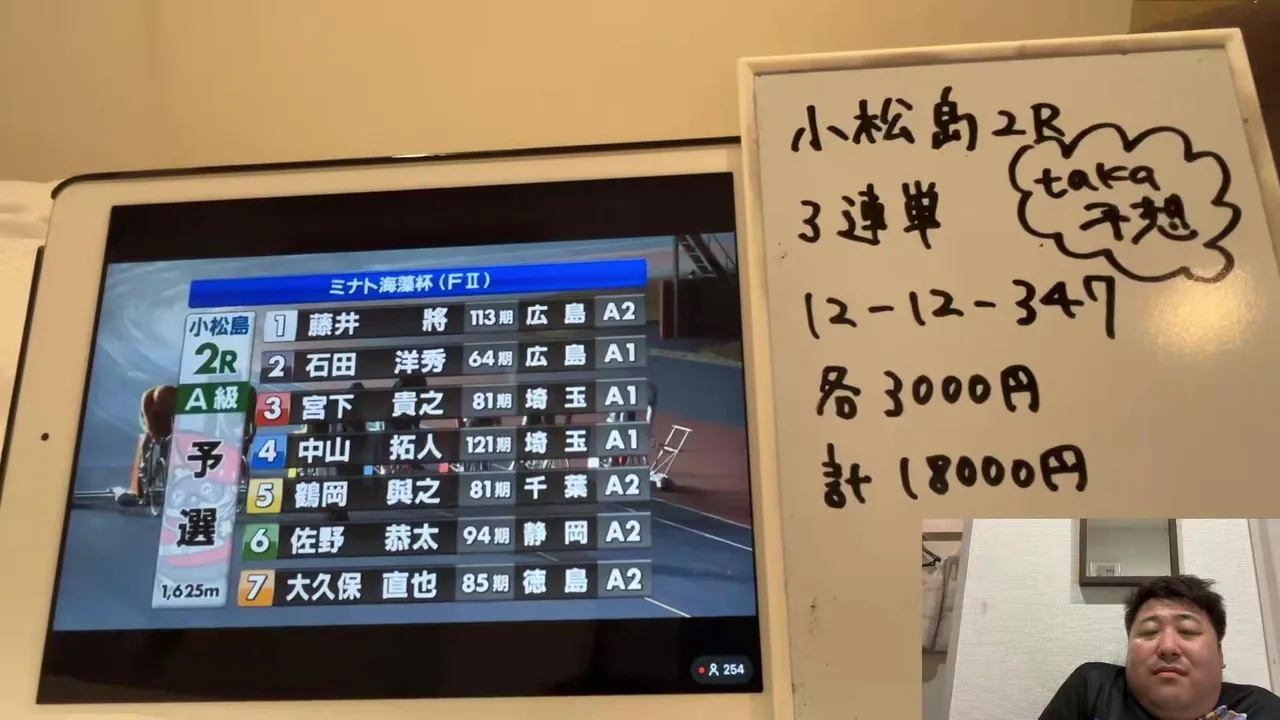 ミナト海藻杯(FⅡ)
小松島
2R
A級
予選
1,625m
1 藤井 將 113期 広島 A2
2 石田 洋秀 64期 広島 A1
3 宮下 貴之 81期 埼玉 A1
4 中山 拓人 121期 埼玉 A1
5 鶴岡 與之 81期 千葉 A2
6 佐野 恭太 94期 静岡 A2
7 大久保 直也 85期 徳島 A2
254
小松島2R
taka
予想
3連単
12-12-347
各3000円
計18000円